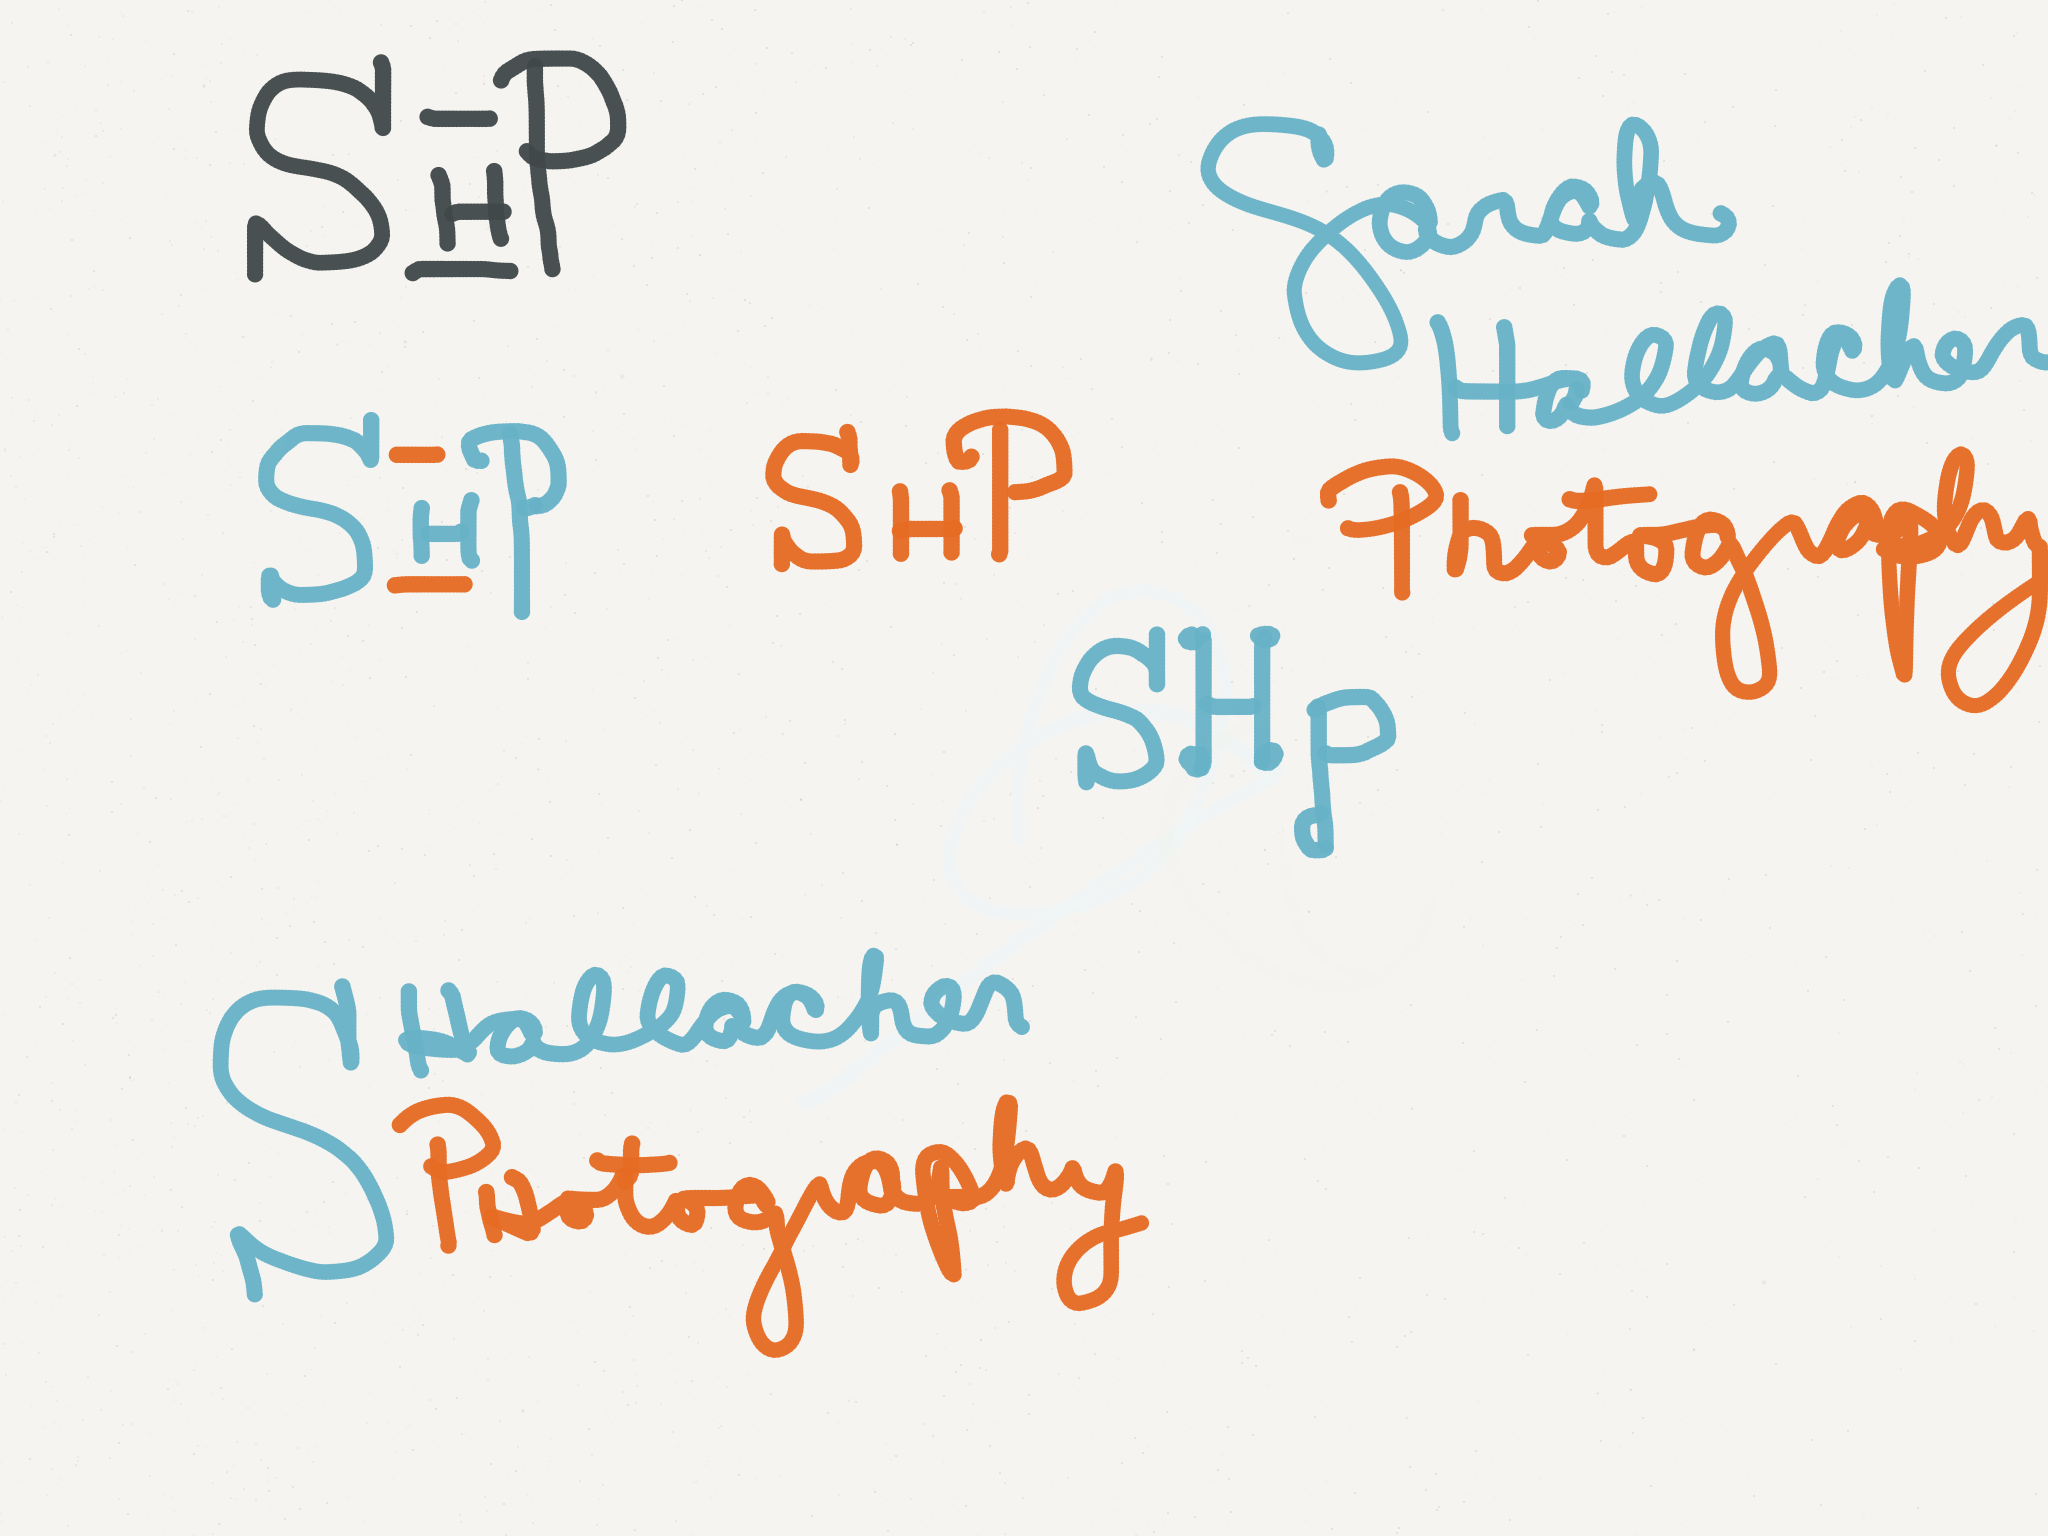 SHP
Sarah
Hallacher
Photography
SHP
SHP
SHp
S Hallacher
Photography